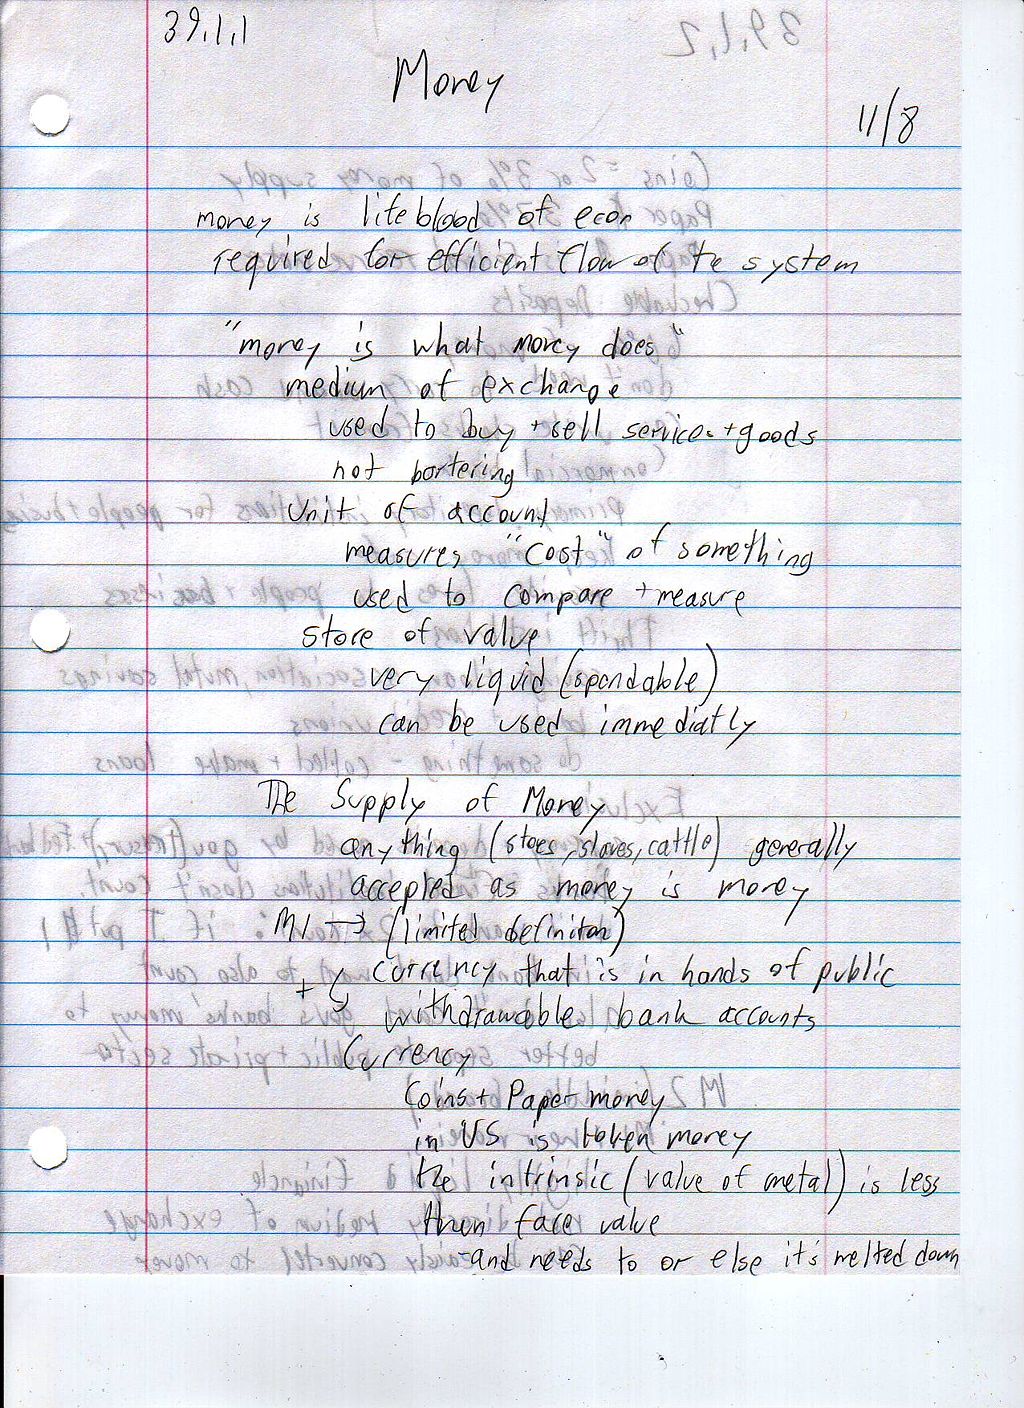 39.1.1
Money
11/8
money is lifeblood of econ
required for efficient flow of the system
"money is what money does"
medium of exchange
used to buy + sell services + goods
not bortering
Unit of account
measures "cost" of something
used to compare + measure
store of value
very liquid (spendable)
can be used immediatly
The Supply of Money
anything (stoes, slaves, cattle) generally
accepted as money is money
M1 → (limited definiton)
currency that is in hands of public
+ withdrawable bank accounts
Currency
Coins + Paper money
in US is token money
the intrinsic (value of metal) is less
then face value
-and needs to or else it's melted down